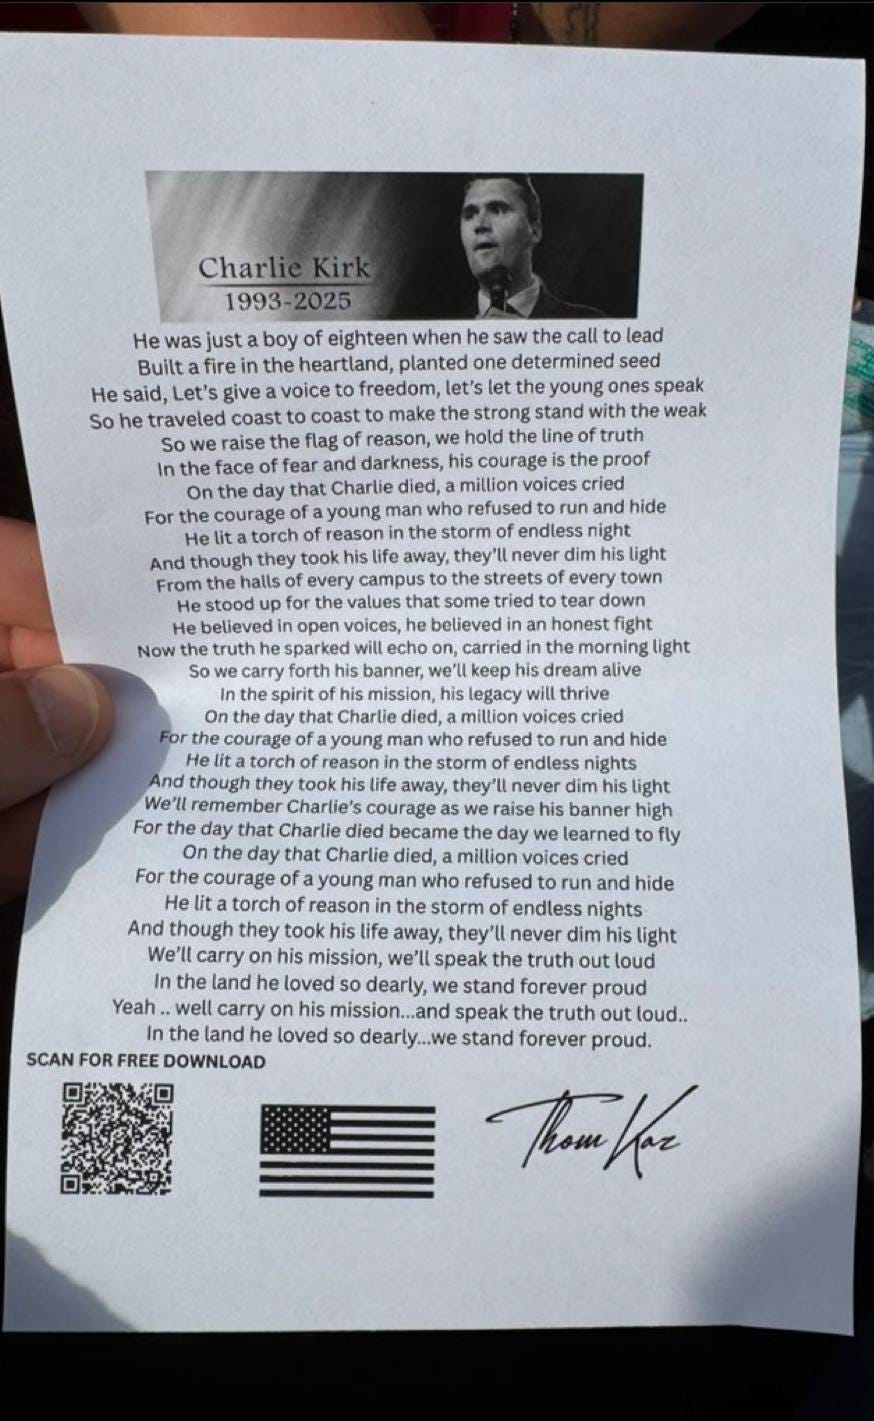 Charlie Kirk
1993-2025
He was just a boy of eighteen when he saw the call to lead
Built a fire in the heartland, planted one determined seed
He said, Let's give a voice to freedom, let's let the young ones speak
So he traveled coast to coast to make the strong stand with the weak
So we raise the flag of reason, we hold the line of truth
In the face of fear and darkness, his courage is the proof
On the day that Charlie died, a million voices cried
For the courage of a young man who refused to run and hide
He lit a torch of reason in the storm of endless night
And though they took his life away, they'll never dim his light
From the halls of every campus to the streets of every town
He stood up for the values that some tried to tear down
He believed in open voices, he believed in an honest fight
Now the truth he sparked will echo on, carried in the morning light
So we carry forth his banner, we'll keep his dream alive
In the spirit of his mission, his legacy will thrive
On the day that Charlie died, a million voices cried
For the courage of a young man who refused to run and hide
He lit a torch of reason in the storm of endless nights
And though they took his life away, they'll never dim his light
We'll remember Charlie's courage as we raise his banner high
For the day that Charlie died became the day we learned to fly
On the day that Charlie died, a million voices cried
For the courage of a young man who refused to run and hide
He lit a torch of reason in the storm of endless nights
And though they took his life away, they'll never dim his light
We'll carry on his mission, we'll speak the truth out loud
In the land he loved so dearly, we stand forever proud
Yeah .. well carry on his mission...and speak the truth out loud..
In the land he loved so dearly...we stand forever proud.
SCAN FOR FREE DOWNLOAD
Thom Kaz